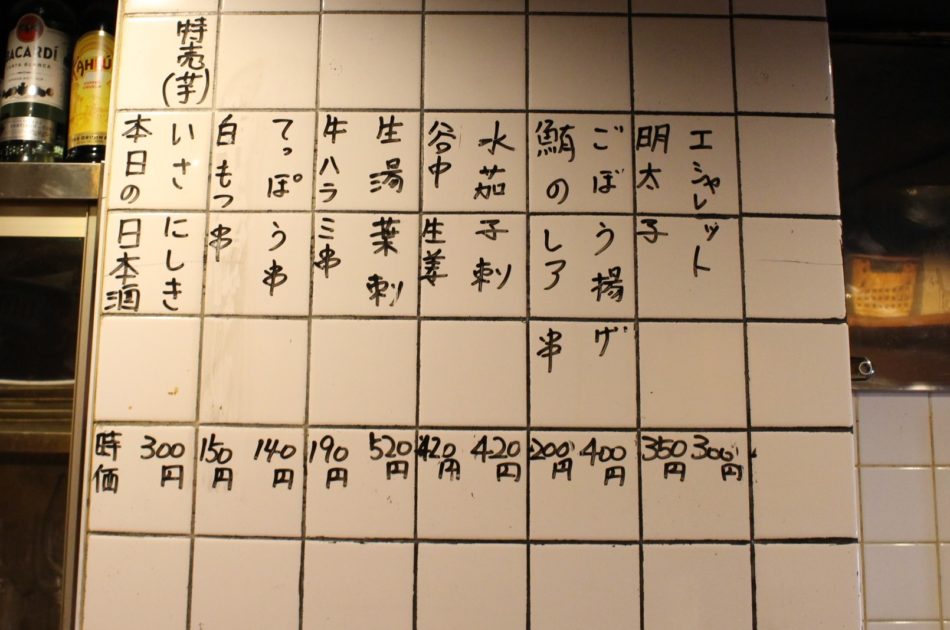 エシャレット 300円
明太子 350円
ごぼう揚げ 400円
鮪のしそ串 200円
水茄子刺 420円
谷中生姜 420円
生湯葉刺 520円
牛ハラミ串 190円
てっぽう串 140円
白もつ串 150円
特売(芋)
いさにしき 300円
本日の日本酒 時価
BACARDÍ
KAHLÚA